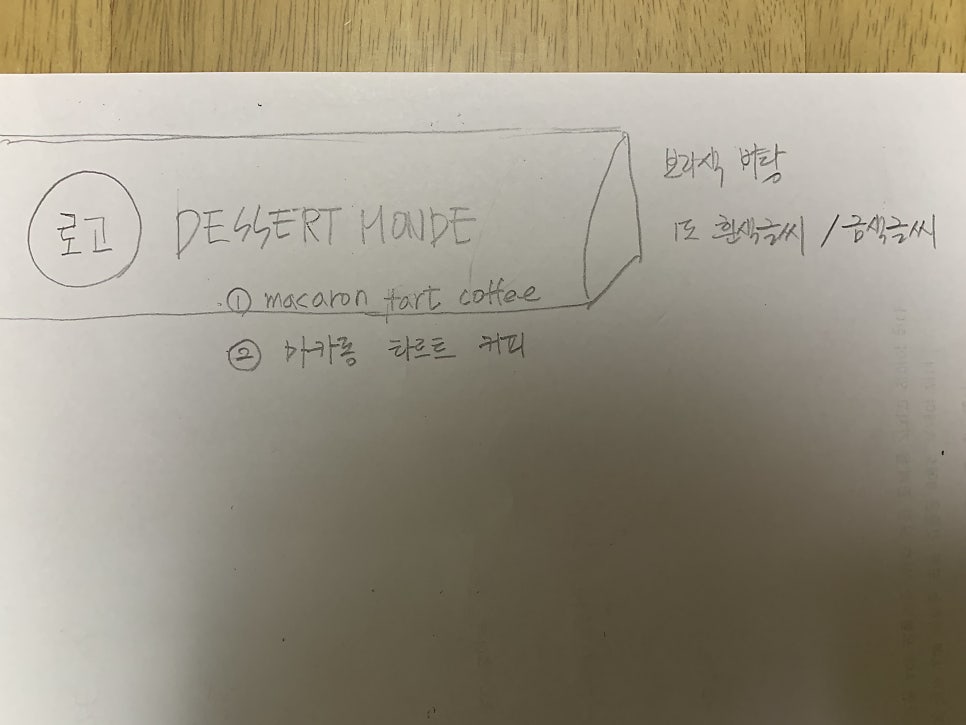 로고
DESSERT MONDE
① macaron tart coffee
② 마카롱 타르트 커피
보라색 바탕
1도 흰색글씨 / 금색글씨